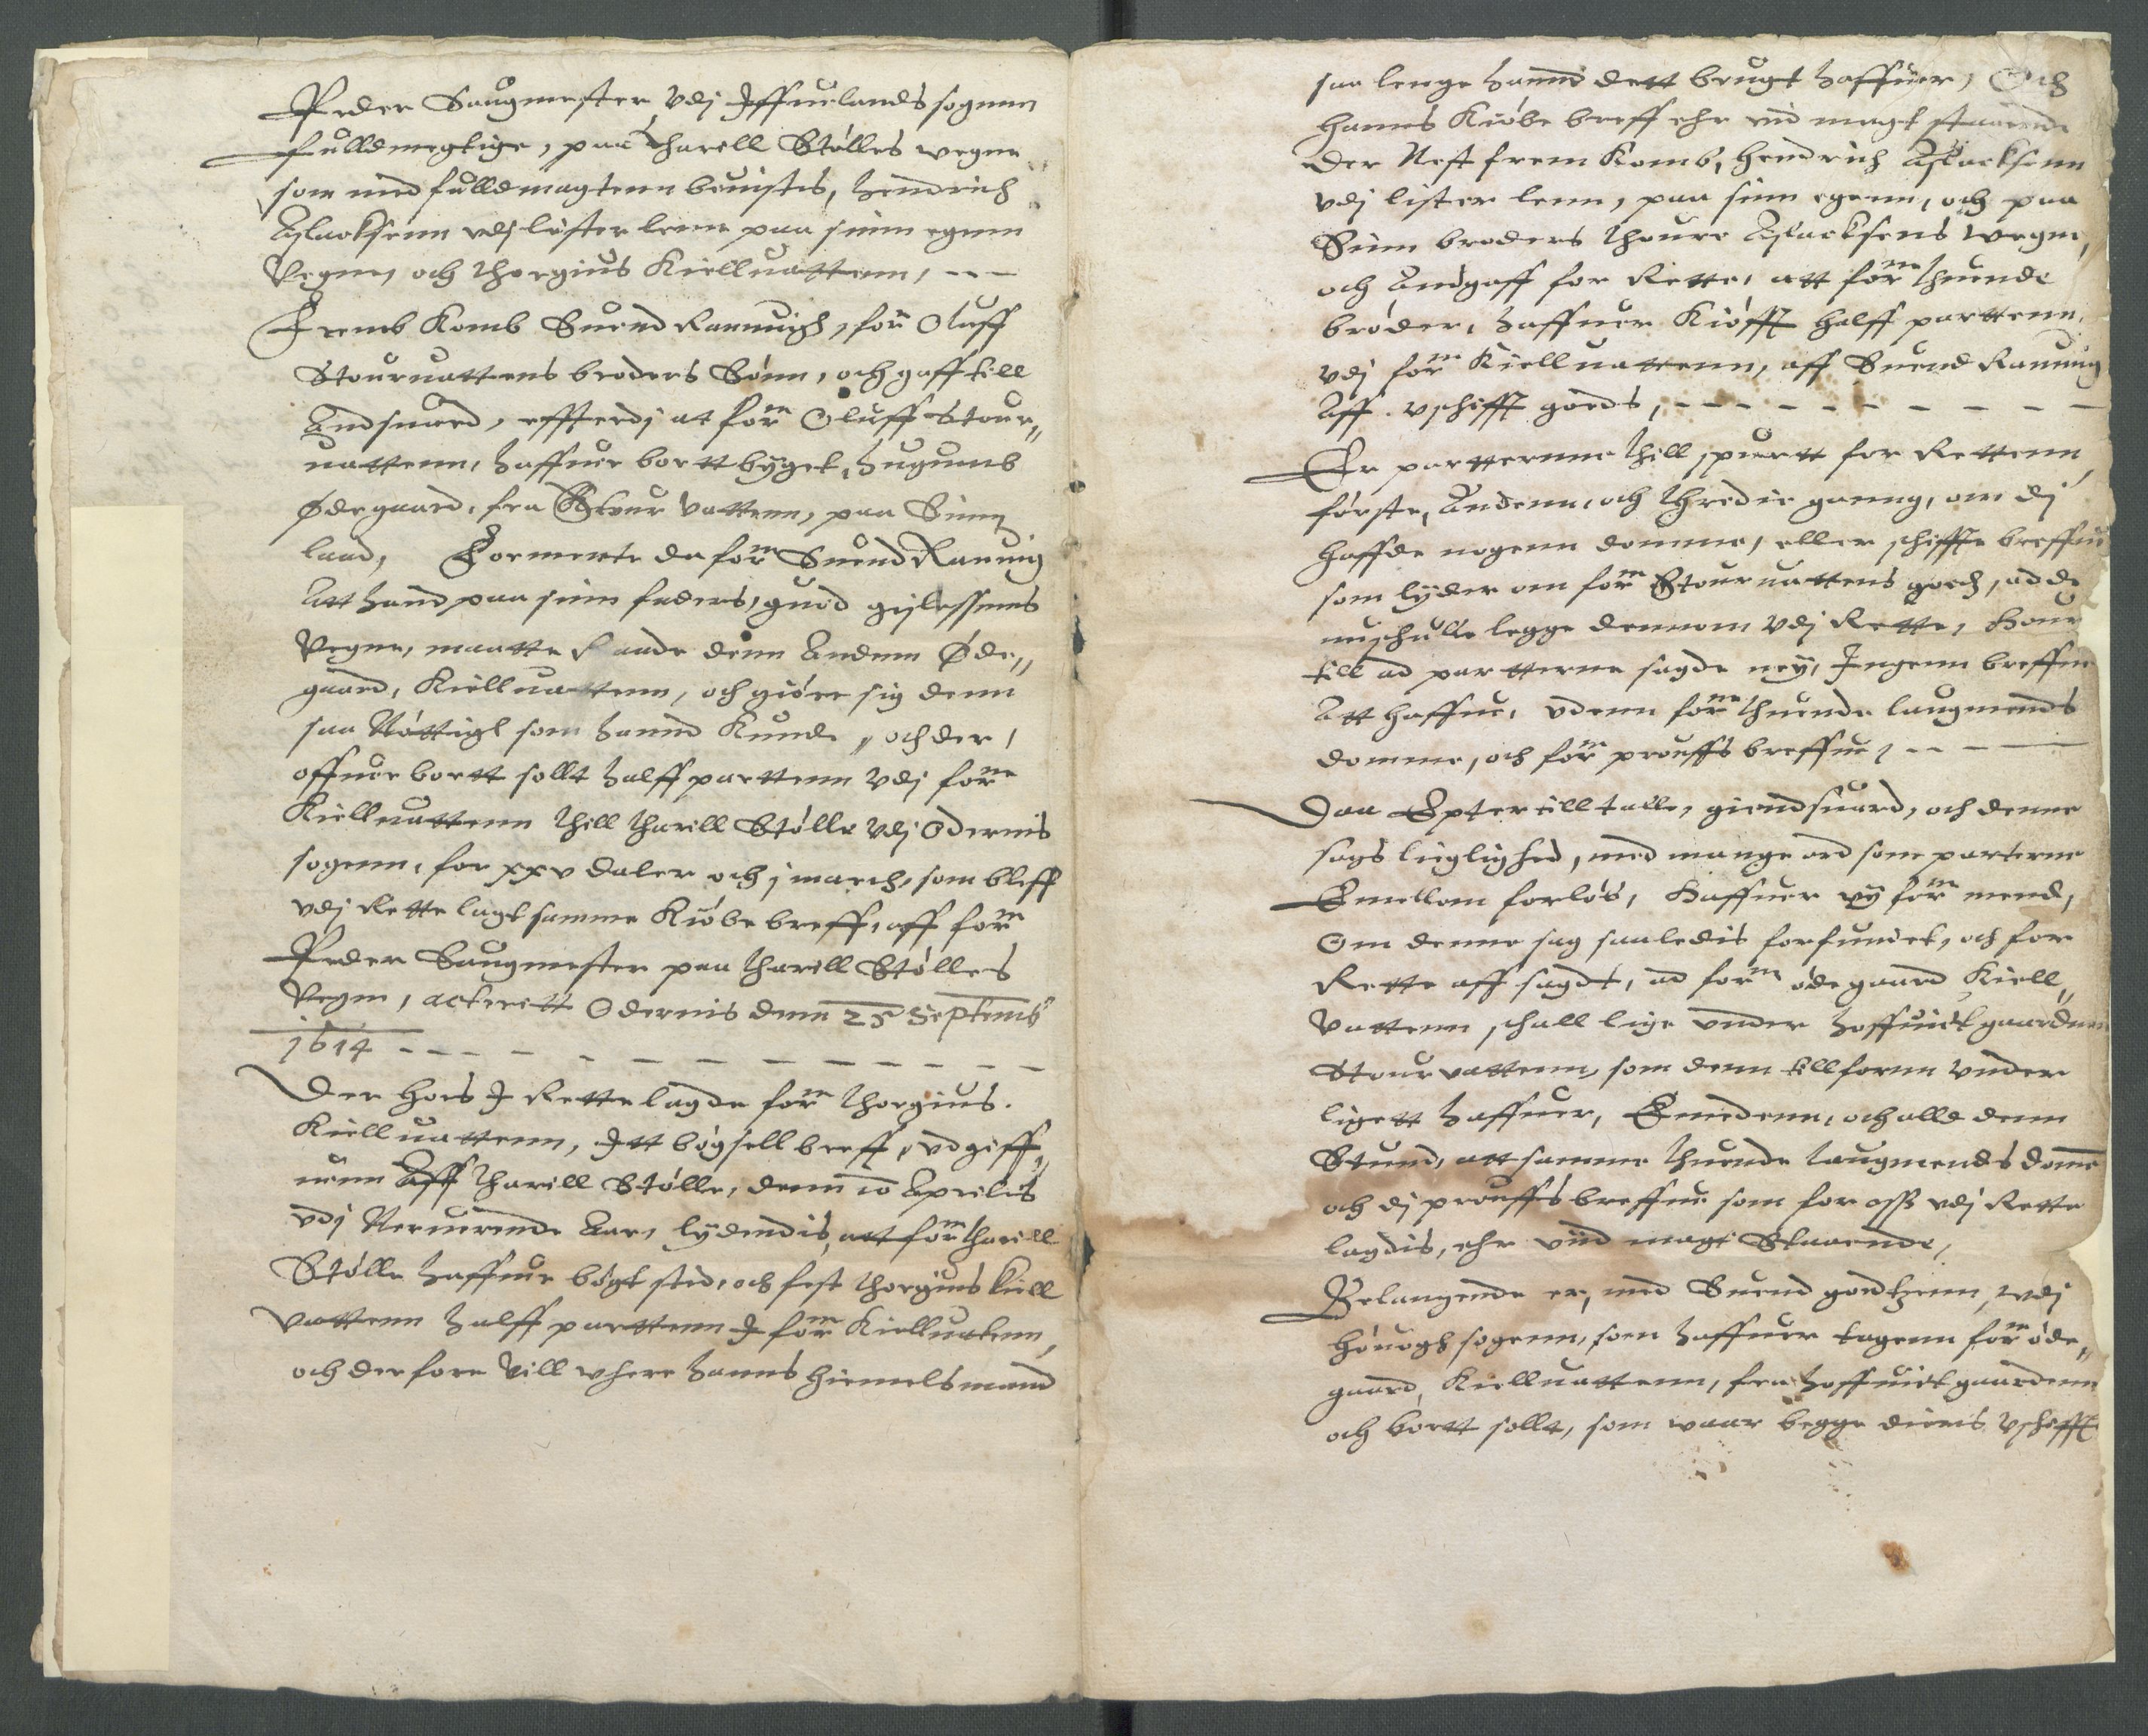 Peder Saugmester vdj Iffuelands sognn
fulldmegtige, paa Tharell Stølles wegne
som med fulldmagtenn beuistes, Hendrich
Aslacksenn vdj lister lenn paa sinn egenn
Vegne, och Thorgius Kielluattenn, ---
Fremb Komb Suend Rannuigh, for Oluff
Stouruattens broders Sønn, och gaff till
Andsuard, effterdj at forne Oluff Stour„
uattenn, haffuer bortt bygget, Hugumb
Ødegaard, fra Stour Vattenn, paa Sinn
land, Formente da forne Suend Rannuig
Att hand paa sinn faders, gud gislessenns
Vegne, maatte Raade denn Andenn Øde„
gaard, Kielluattenn, och giøre sig denn
saa Nøttigt som hannd Kunde, och der,
offuer bortt sollt halff parttenn vdj forne
Kielluattenn thill Tharill Stølle vdj Odernis
sogenn, for xxv daler och j march, som bleff
vdj Rette lagt samme Kiøbe breff, aff forne
Peder Saugmester paa Tharell Stølles
Vegne, actteritt Odernis denn 25 Septemb
1614 ---
Der hos I Rette lagde forne Thorgius.
Kielluattenn, Itt bøgsell breff, vdgiff„
uenn Aff Tharill Stølle, denn 10 Aprilis
vdj Neruerende Aar, lydendis, att forne Tharill
Stølle haffuer bøgt sted, och fest Thorgius Kiell
Vattenn halff parttenn I forne Kielluattenn,
och derfore Vill where hanns hiemelsmand
saa lenge hannd dett brugt haffuer, Och
Hanns Kiøbe breff ehr wid magt staaende
Der Nest frem Komb, Hendrich Aslacksenn
vdj lister lenn, paa sinn egenn, och paa
Sinn broders Thoure Aslacksens Wegne,
och Andgaff for Rette, att forne Thuende
brøder, haffuer Kiøfft halff parttenn,
vdj forne Kielluattenn, aff Suend Rannuig
Aff vschifft gods, ---
Er partternne thill spurtt for Rettenn,
første, Andenn, och Thredie ganng, om dj
haffde nogenn domme, eller schiffte breffue
som lyder om forne Stouruattens goeds, ad de
nu schulle legge dennom vdj Rette, Hour
till ad partterne sagde ney, Ingenn breffue
Att haffue, vdenn forne Thuende laugmends
domme, och forne prouffs breffue, ---
Daa Epter till talle, giendsuard, och denne
sags lieglighed, med mange ord som parterne
Emellom forløb, Haffuer wy forne mend,
Om denne sag saaledis forfundet, och for
Rette aff sagdt, ad forne øde gaard Kiell„
Vattenn schall lige vnder hoffuitgaardenn
Stouruattenn, som denn tillfornn vnder
ligett haffuer, Emedenn, och alld denn
Stund, att samme Thuende laugmends domme
och dj prouffs breffue som for oss vdj Rette
lagdis, ehr wiid magt Staaende,
Belangende er, med Suend godtzenn, vdj
Høuogh sogenn, som haffuer tagenn forne øde„
gaard, Kielluattenn, fra hoffuitgaardenn
och bortt sollt, som waar begge dieris vschifft